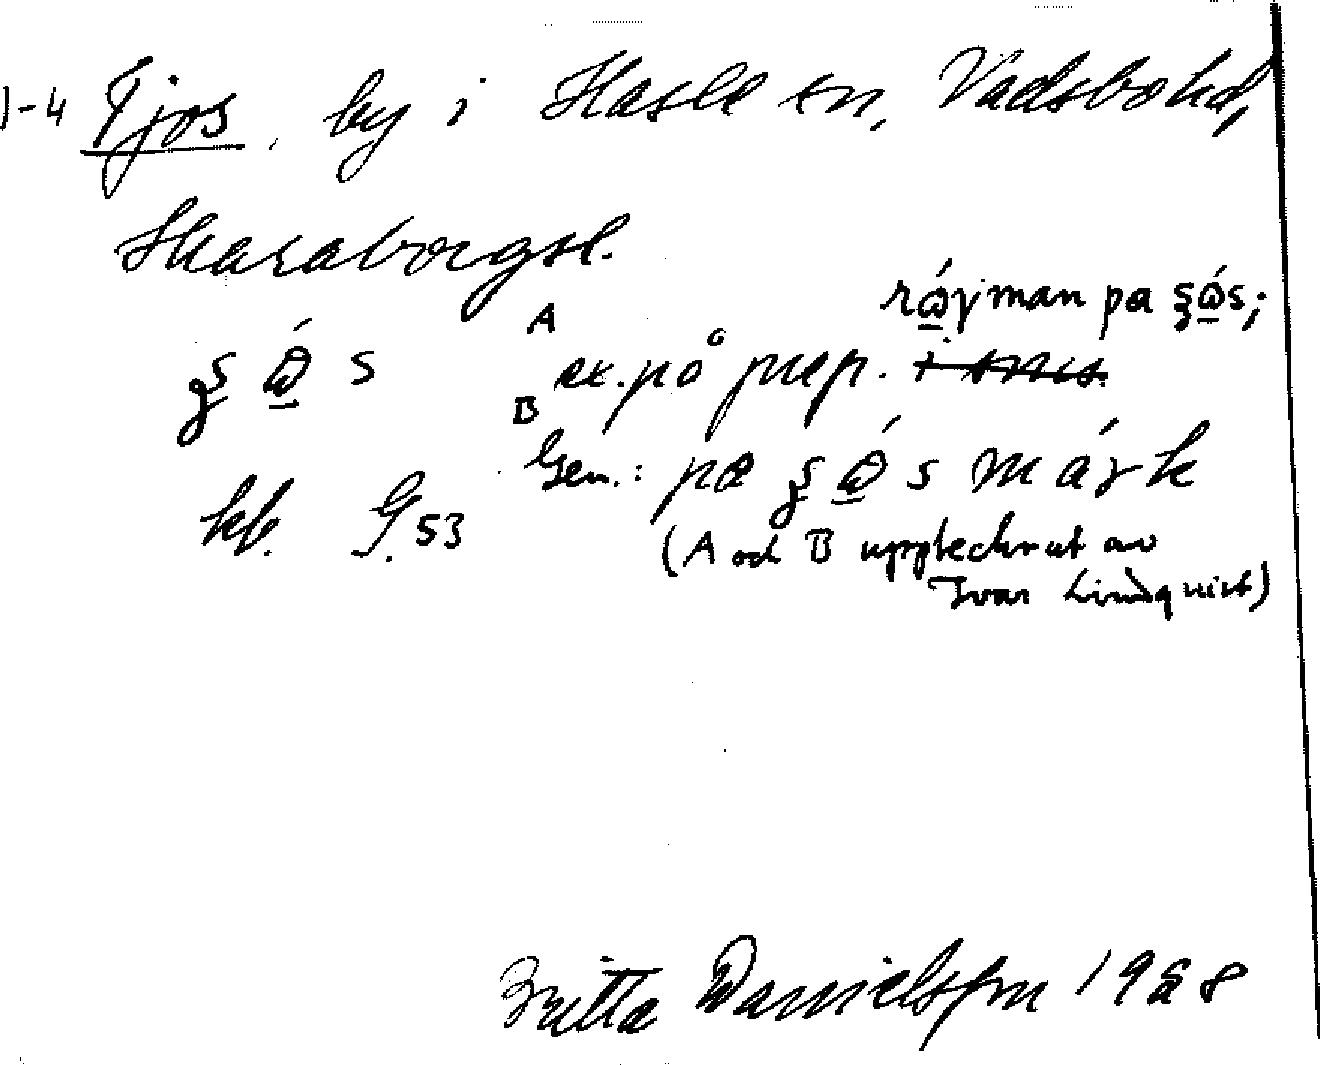 1-4 Fjos, by i Hassle sn, Vadsbo hd,
Skaraborgsl.
rágman pa s;
A
s ex. på prep.
B
Gen.: pa s márk
kf. G. 53
(A och B upptecknat av
Ivar Lindquist)
Britta Danielsson 1928